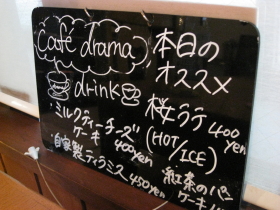 Café drama
drink
・ミルクティーチーズ
ケーキ 400yen
・自家製ティラミス 450yen
本日の
オススメ
桜ラテ 400yen
(HOT/ICE)
紅茶のパン
ケーキ